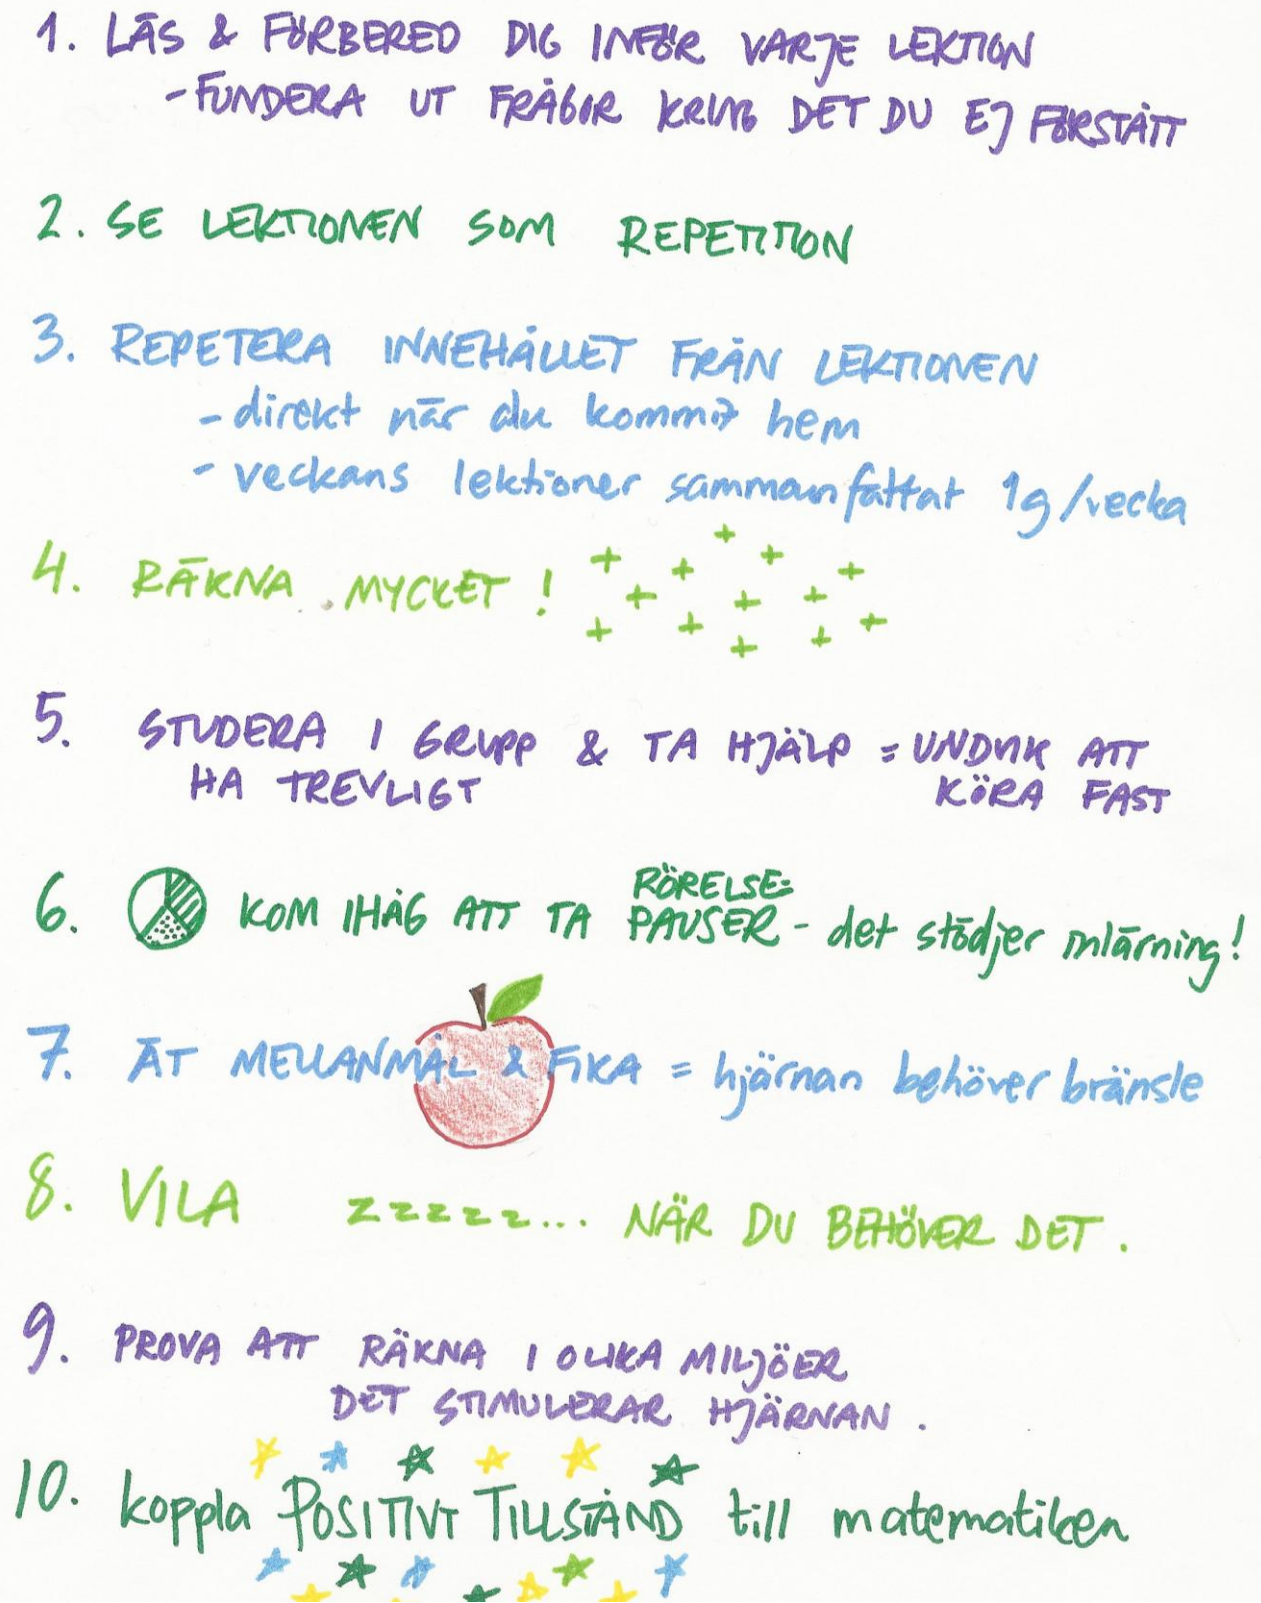 1. LÄS & FÖRBERED DIG INFÖR VARJE LEKTION
- FUNDERA UT FRÅGOR KRING DET DU EJ FÖRSTÅTT
2. SE LEKTIONEN SOM REPETITION
3. REPETERA INNEHÅLLET FRÅN LEKTIONEN
- direkt när du kommit hem
- veckans lektioner sammanfattat 1g/vecka
4. RÄKNA MYCKET !
5. STUDERA I GRUPP & TA HJÄLP = UNDVIK ATT
HA TREVLIGT KÖRA FAST
6. KOM IHÅG ATT TA RÖRELSE-
PAUSER - det stödjer inlärning!
7. ÄT MELLANMÅL & FIKA = hjärnan behöver bränsle
8. VILA zzzzz... NÄR DU BEHÖVER DET.
9. PROVA ATT RÄKNA I OLIKA MILJÖER
DET STIMULERAR HJÄRNAN.
10. koppla POSITIVT TILLSTÅND till matematiken